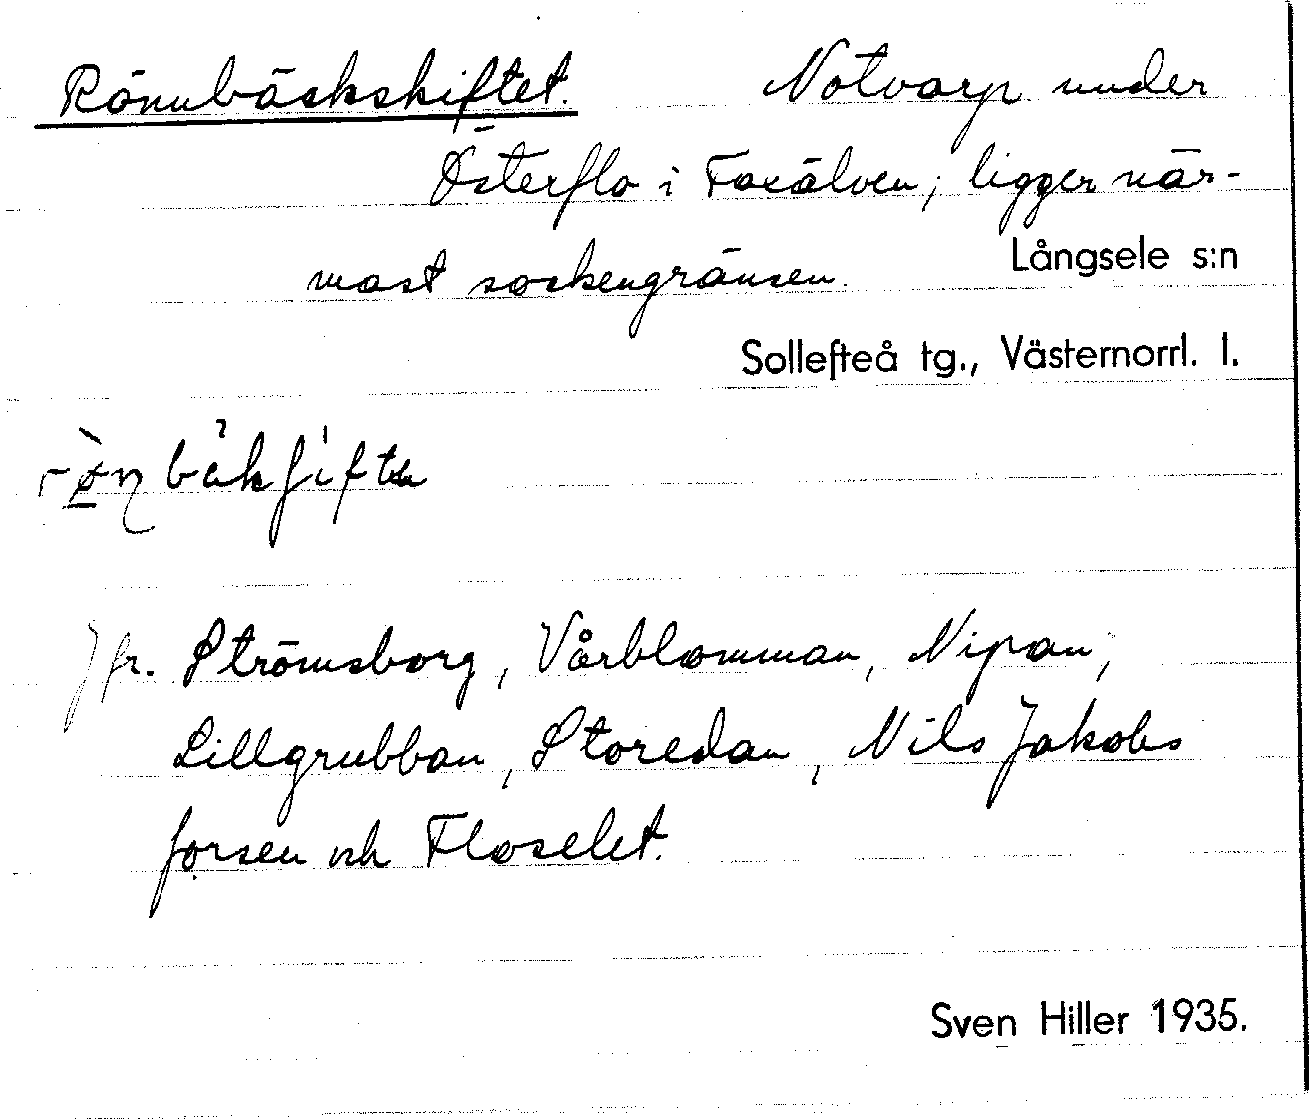 Rönnbäckskiftet. Notvarp under
Österflo i Faxälven; ligger när-
mast sockengränsen.
Långsele s:n
Sollefteå tg., Västernorrl. l.
Jfr. Strömsborg, Vårblomman, Nipan,
Lillgrubban, Storedan, Nils Jakobs
forsen och Floselet.
Sven Hiller 1935.